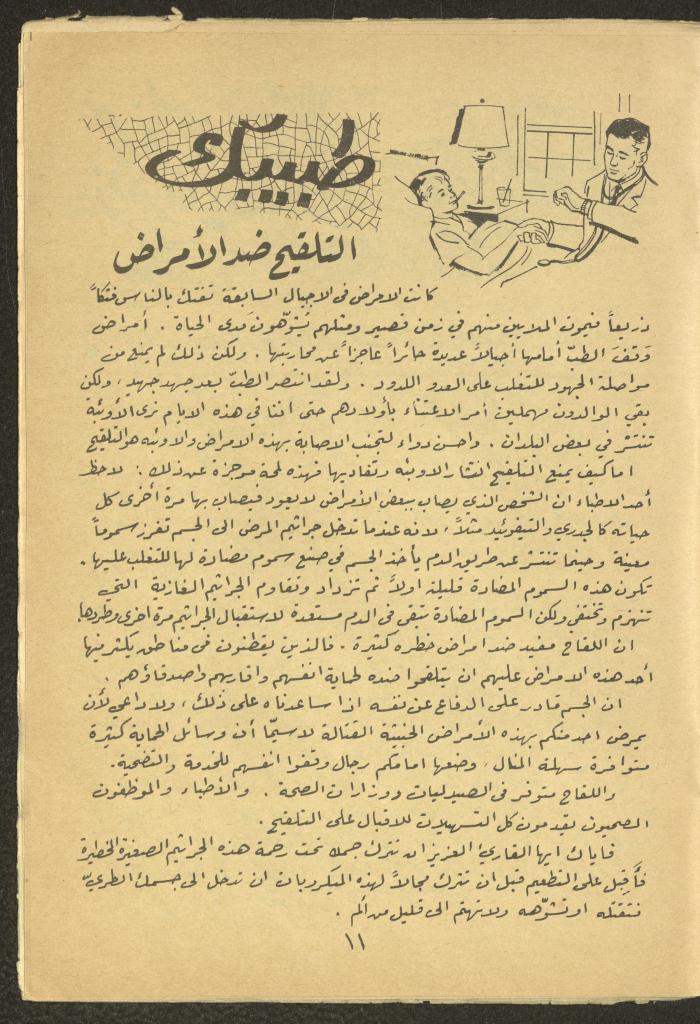 طبيبك
التلقيح ضد الأمراض
كانت الامراض في الاجيال السابقة تفتك بالناس فتكاً
ذريعاً فيموت الملايين منهم في زمن قصير ومثلهم يُشوّهونَ مدى الحياة . أمراض
وَقفَ الطبّ أمامها أجيالاً عديدة حائراً عاجزاً عن محاربتها . ولكن ذلك لم يمنع من
مواصلة الجهود للتغلب على العدو اللدود . ولقد انتصر الطبّ بعد جهد جهيد ، ولكن
بقي الوالدون مهملين أمر الاعتناء بأولادهم حتى اننا في هذه الايام نرى الأوبئة
تنتشر في بعض البلدان . واحسن دواء لتجنب الاصابة بهذه الامراض والاوبئه هو التلقيح
اما كيف يمنع التلقيح انتشار الاوبئه وتفاديها فهذه لمحة موجزة عن ذلك : لاحظ
أحد الاطباء ان الشخص الذي يصاب ببعض الأمراض لا يعود فيصاب بها مرة أخرى كل
حياته كالجدري والتيفوئيد مثلاً ، لانه عندما تدخل جراثيم المرض الى الجسم تفرز سموماً
معينة وحينما تنتشر عن طريق الدم يأخذ الجسم في صنع سموم مضادة لها للتغلب عليها .
تكون هذه السموم المضادة قليلة اولاً ثم تزداد وتقاوم الجراثيم الغازية التي
تنهزم وتختفي ولكن السموم المضادة تبقى في الدم مستعدة لاستقبال الجراثيم مرة اخرى وطردها.
ان اللقاح مفيد ضد امراض خطره كثيرة . فالذين يقطنون في مناطق يكثر فيها
أحد هذه الامراض عليهم ان يتلقحوا ضده لحماية انفسهم واقاربهم واصدقاؤهم .
ان الجسم قادر على الدفاع عن نفسه اذا ساعدناه على ذلك ، ولا داعي لأن
يمرض احد منكم بهذه الأمراض الخبيثة القتالة لاسيّما أن وسائل الحماية كثيرة
متوافرة سهلة المنال ، وضعها امامكم رجال وقفوا انفسهم للخدمة والتضحية .
واللقاح متوفر في الصيدليات ووزارات الصحة . والأطباء والموظفون
الصحيون يقدمون كل التسهيلات للاقبال على التلقيح .
فاياك ايها القارئ العزيز ان تترك جسمك تحت رحمة هذه الجراثيم الصغيرة الخطيرة
فأَقبِل على التطعيم قبل ان تترك مجالاً لهذه الميكروبات ان تدخل الى جسمك الطريّ
فتقتله او تشوّهه ولا تهتم الى قليل من ألم .
١١